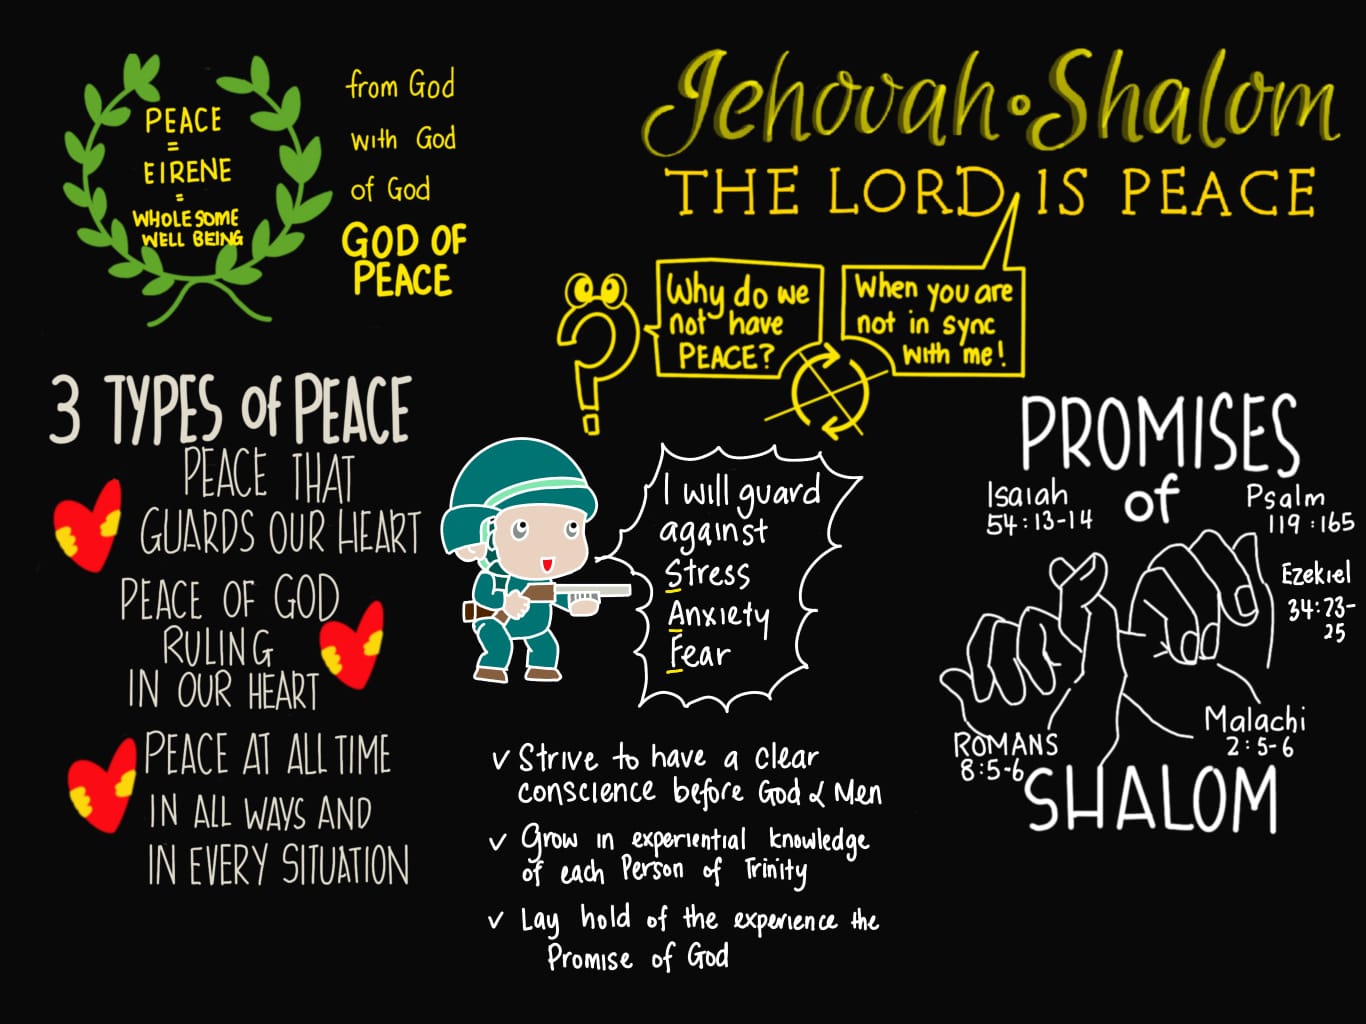 Jehovah·Shalom
THE LORD IS PEACE
PEACE
=
EIRENE
=
WHOLESOME
WELL BEING
from God
with God
of God
GOD OF
PEACE
Why do we
not have
PEACE?
When you are
not in sync
with me!
3 TYPES of PEACE
PEACE THAT
GUARDS OUR HEART
PEACE OF GOD
RULING
IN OUR HEART
PEACE AT ALL TIME
IN ALL WAYS AND
IN EVERY SITUATION
I will guard
against
Stress
Anxiety
Fear
✓ Strive to have a clear
conscience before God & Men
✓ Grow in experiential knowledge
of each Person of Trinity
✓ Lay hold of the experience the
Promise of God
PROMISES
of
Isaiah
54:13-14
Psalm
119:165
Ezekiel
34:23-
25
Malachi
2:5-6
ROMANS
8:5-6
SHALOM